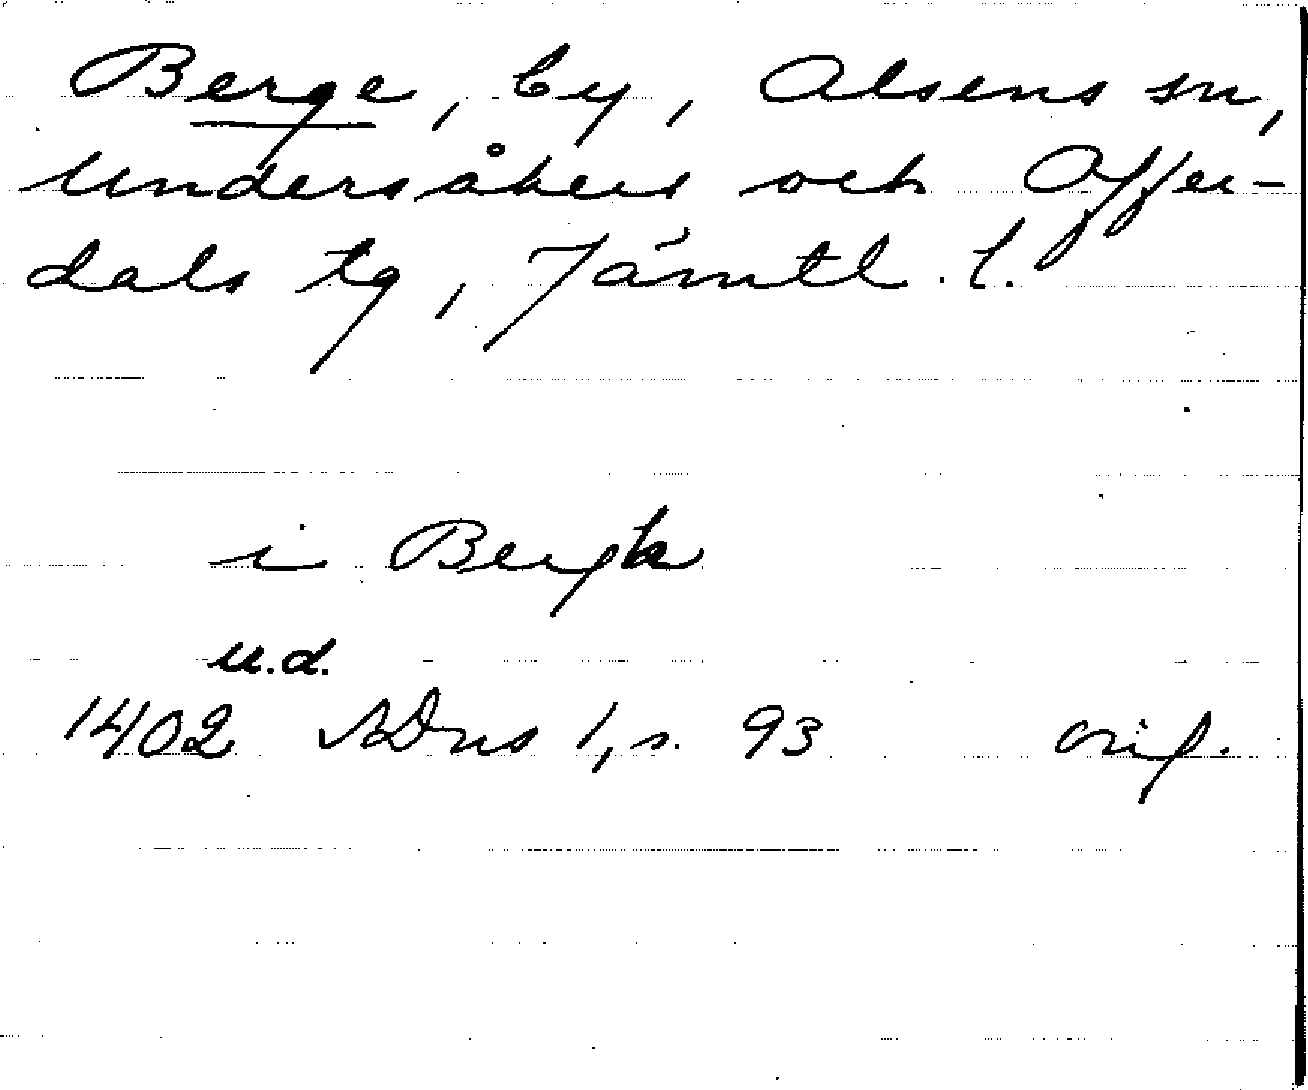 Berge, by, Alsens sn,
Undersåkers och Offer-
dals tg, Jämtl. l.
i Bergh
u.d.
1402 SDns 1, s. 93 orig.